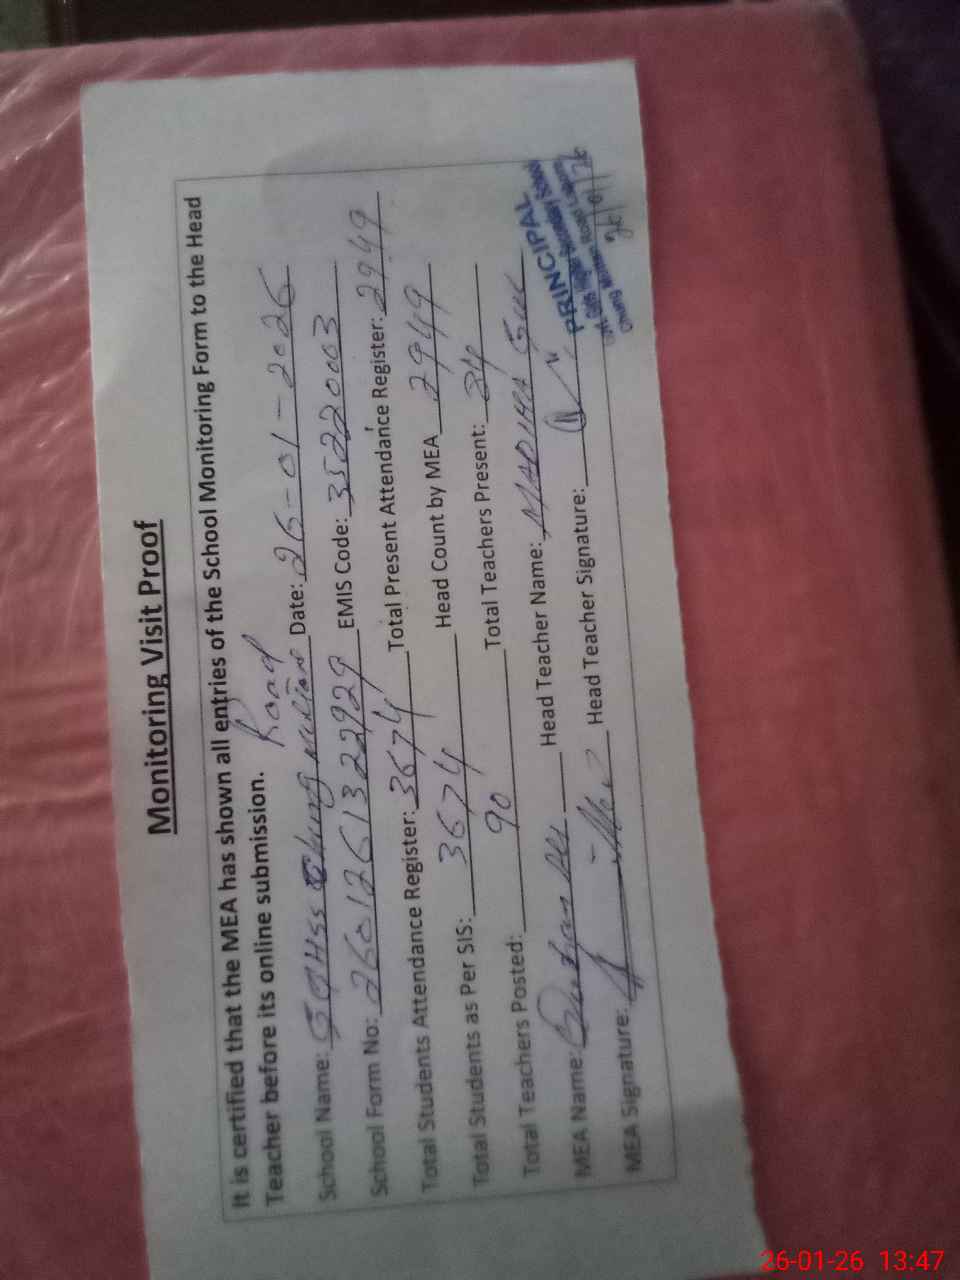 Monitoring Visit Proof
It is certified that the MEA has shown all entries of the School Monitoring Form to the Head
Teacher before its online submission.
Road
School Name: GGHSS Chung Multan Date: 26-01-2026
School Form No: 260126132 2929 EMIS Code: 35220003
Total Students Attendance Register: 3674 Total Present Attendance Register: 2949
Total Students as Per SIS: 3674 Head Count by MEA 2949
Total Teachers Posted: 90 Total Teachers Present: 84
MEA Name: Head Teacher Name: MADIHA GUL
MEA Signature: Head Teacher Signature:
PRINCIPAL
26/01/26
26-01-26 13:47